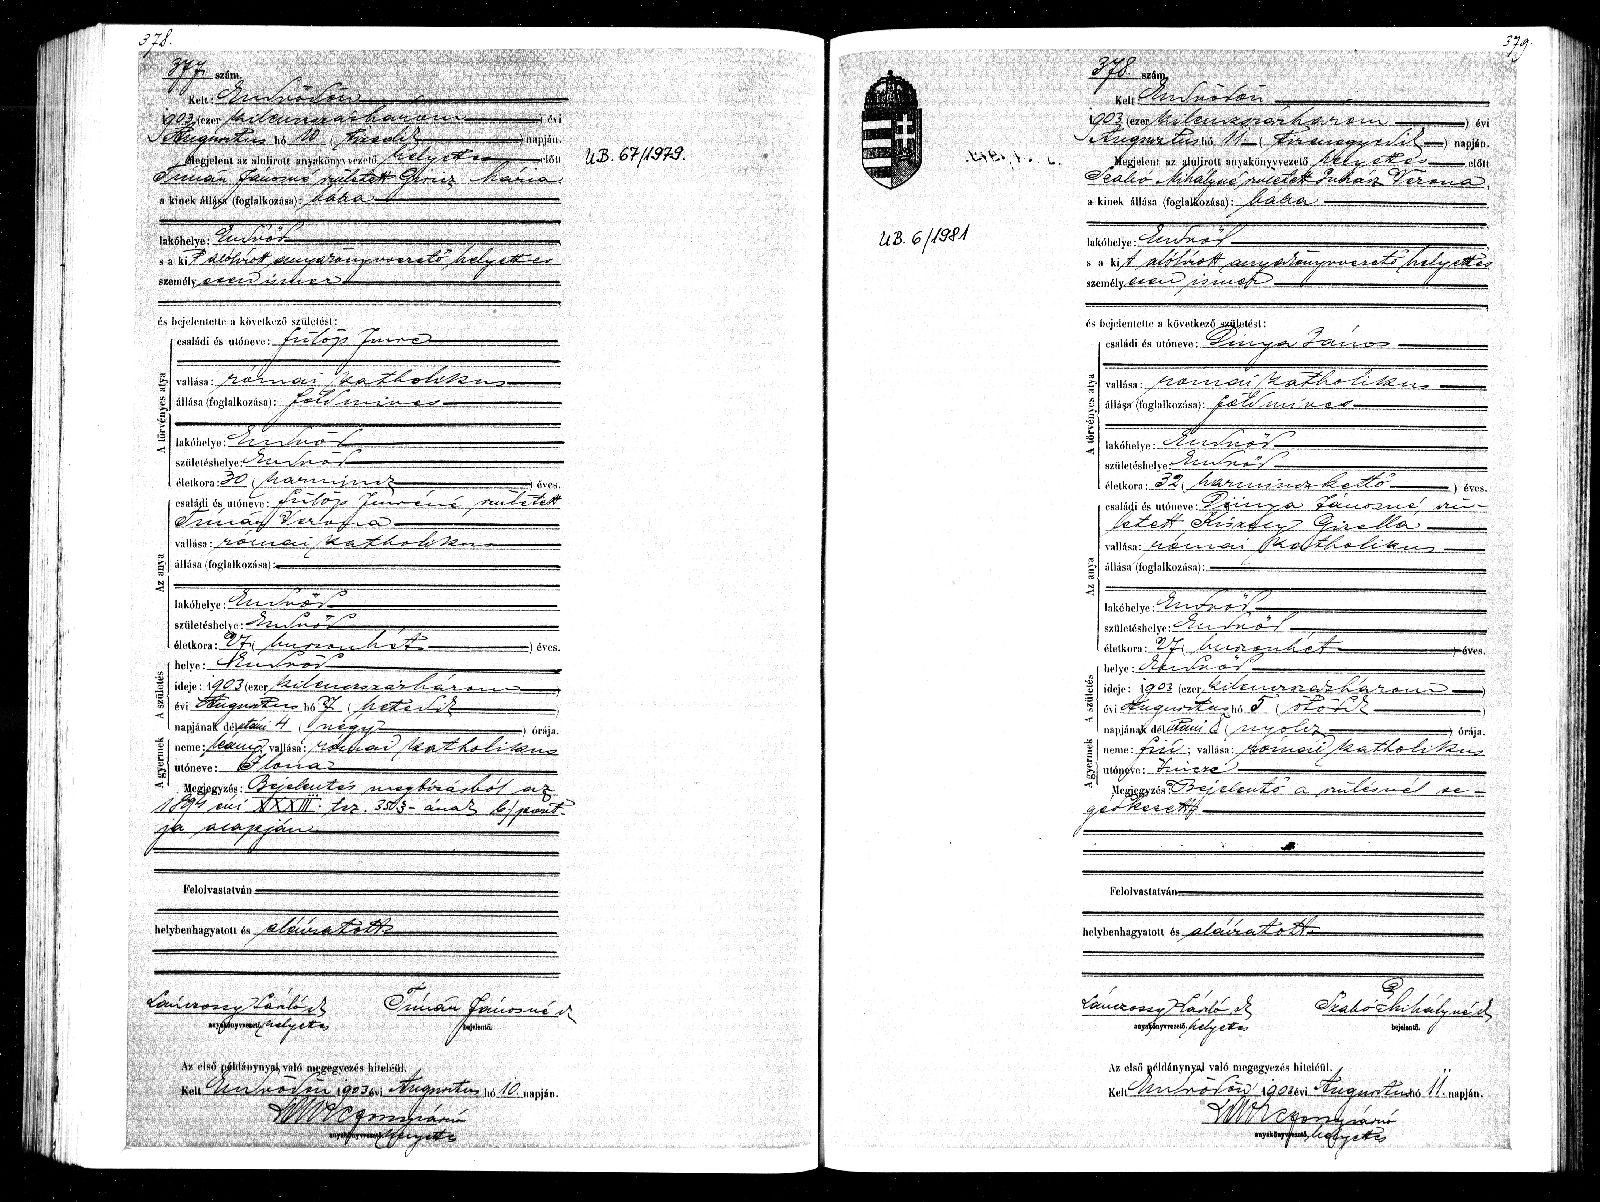 378.
377. szám.
Kelt: Endrődön
1903 (ezer kilenczszázhárom) évi
Augusztus hó 10 (tizedik) napján.
Megjelent az alulirott anyakönyvvezető helyettes előtt
Timár Jánosné született Giricz Mária
a kinek állása (foglalkozása): bába
lakóhelye: Endrőd
s a kit alólirott anyakönyvvezető helyettes
személyesen ismer
és bejelentette a következő születést:
A törvényes atya
családi és utóneve: Fülöp Imre
vallása: római katholikus
állása (foglalkozása): földmives
lakóhelye: Endrőd
születéshelye: Endrőd
életkora: 30 (harmincz) éves.
Az anya
családi és utóneve: Fülöp Imréné, született
Timár Verona
vallása: római katholikus
állása (foglalkozása):
lakóhelye: Endrőd
születéshelye: Endrőd
életkora: 27 (huszonhét) éves.
A születés
helye: Endrőd
ideje: 1903 (ezer kilenczszázhárom)
évi Augusztus hó 7 (hetedik)
napjának délutáni 4 (négy) órája.
A gyermek
neme: leány; vallása: római katholikus
utóneve: Ilona
Megjegyzés: Bejelentés megbizásból az
1894 évi XXXIII. tcz. 35 §-ának b/ pont-
ja alapján
Felolvastatván
helybenhagyatott és aláiratott
Lánczossy László Timár Jánosné
anyakönyvvezető. helyettes bejelentő.
Az első példánynyal való megegyezés hiteléül.
Kelt Endrődön 1903 évi Augusztus hó 10. napján.
anyakönyvvezető. helyettes
UB. 67/1979.
379.
UB. 6/1981
378. szám.
Kelt Endrődön
1903 (ezer kilenczszázhárom) évi
Augusztus hó 11 (tizenegyedik) napján.
Megjelent az alulirott anyakönyvvezető helyettes előtt
Szabó Mihályné született Juhász Verona,
a kinek állása (foglalkozása): bába
lakóhelye: Endrőd
s a kit alólirott anyakönyvvezető helyettes
személyesen ismer
és bejelentette a következő születést:
A törvényes atya
családi és utóneve: Dinya János
vallása: római katholikus
állása (foglalkozása): földmives
lakóhelye: Endrőd
születéshelye: Endrőd
életkora: 32 (harminczkettő) éves.
Az anya
családi és utóneve: Dinya Jánosné, szü-
letett Kiszely Gizella
vallása: római katholikus
állása (foglalkozása):
lakóhelye: Endrőd
születéshelye: Endrőd
életkora: 27 (huszonhét) éves.
A születés
helye: Endrőd
ideje: 1903 (ezer kilenczszázhárom)
évi Augusztus hó 5 (ötödik)
napjának délutáni 8 (nyolcz) órája.
A gyermek
neme: fiú; vallása: római katholikus
utóneve: Imre
Megjegyzés: Bejelentő a szülésnél se-
gédkezett
Felolvastatván
helybenhagyatott és aláiratott
Lánczossy László Szabó Mihályné
anyakönyvvezető. helyettes bejelentő.
Az első példánynyal való megegyezés hiteléül.
Kelt Endrődön 1903 évi Augusztus hó 11. napján.
anyakönyvvezető. helyettes